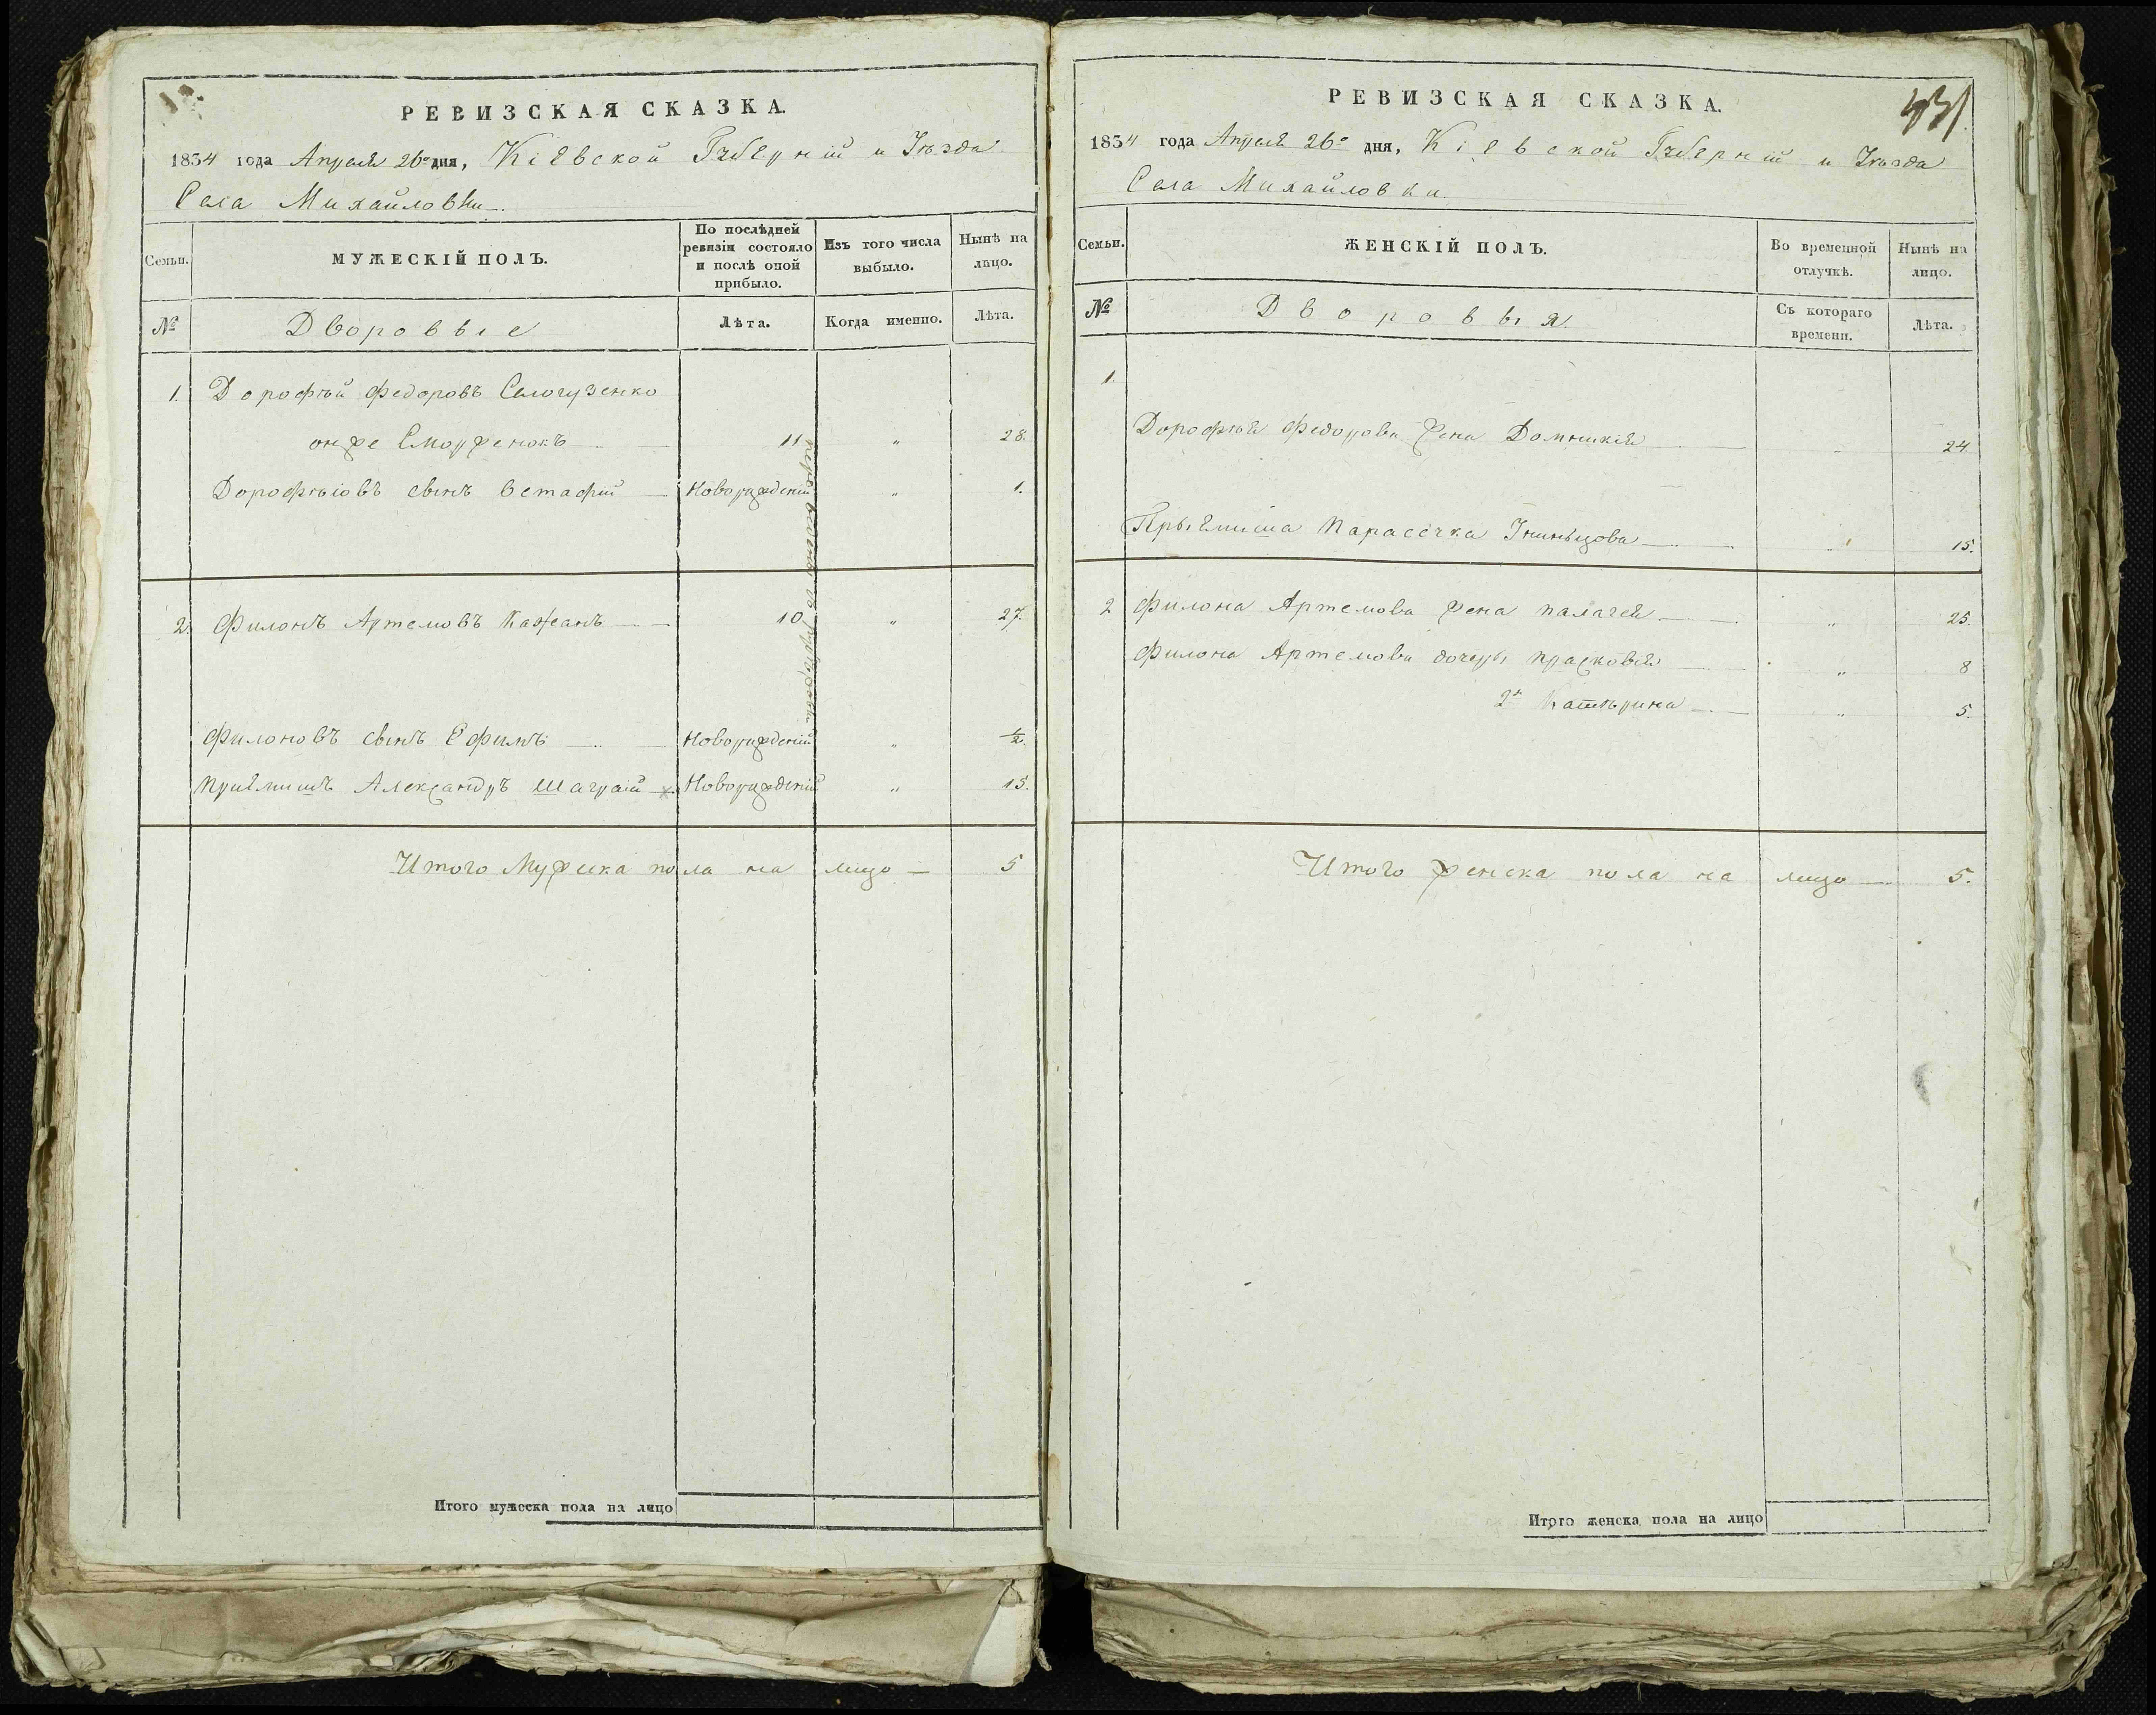 РЕВИЗСКАЯ СКАЗКА.
1854 года Апреля 26го дня, Кіевской Губерніи и Уезда
Села Михайловки
Семьи.
МУЖЕСКІЙ ПОЛЪ.
По послѣдней ревизіи состояло и послѣ оной прибыло.
Изъ того числа выбыло.
Нынѣ на лицо.
№
Дворовые
Лѣта.
Когда именно.
Лѣта.
1. Дорофѣй Федоровъ
онже 11 " 28.
Дорофѣіовъ сынъ Естафій Новорожденій " 1.
2. Филонъ Артемовъ Кажанъ 10 " 27.
Филоновъ сынъ Ефимъ Новорожденій " 1/2.
Приемишъ Александръ Новорожденій " 15.
Итого Мужска пола на лицо 5
Итого мужеска пола на лицо
РЕВИЗСКАЯ СКАЗКА.
431
1854 года Апреля 26го дня, Кіевской Губерніи и Уезда
Села Михайловки
Семьи.
ЖЕНСКІЙ ПОЛЪ.
Во временной отлучкѣ.
Нынѣ на лицо.
№
Дворовыя.
Съ котораго времени.
Лѣта.
1.
Дорофѣя Федорова жена Домникія 24
Прыемиша Парасочка 15.
2 Филона Артемова жена Палагея " 25.
Филона Артемова дочеры Прасковія " 8
2я Катѣрина " 5.
Итого женска пола на лицо 5.
Итого женска пола на лицо